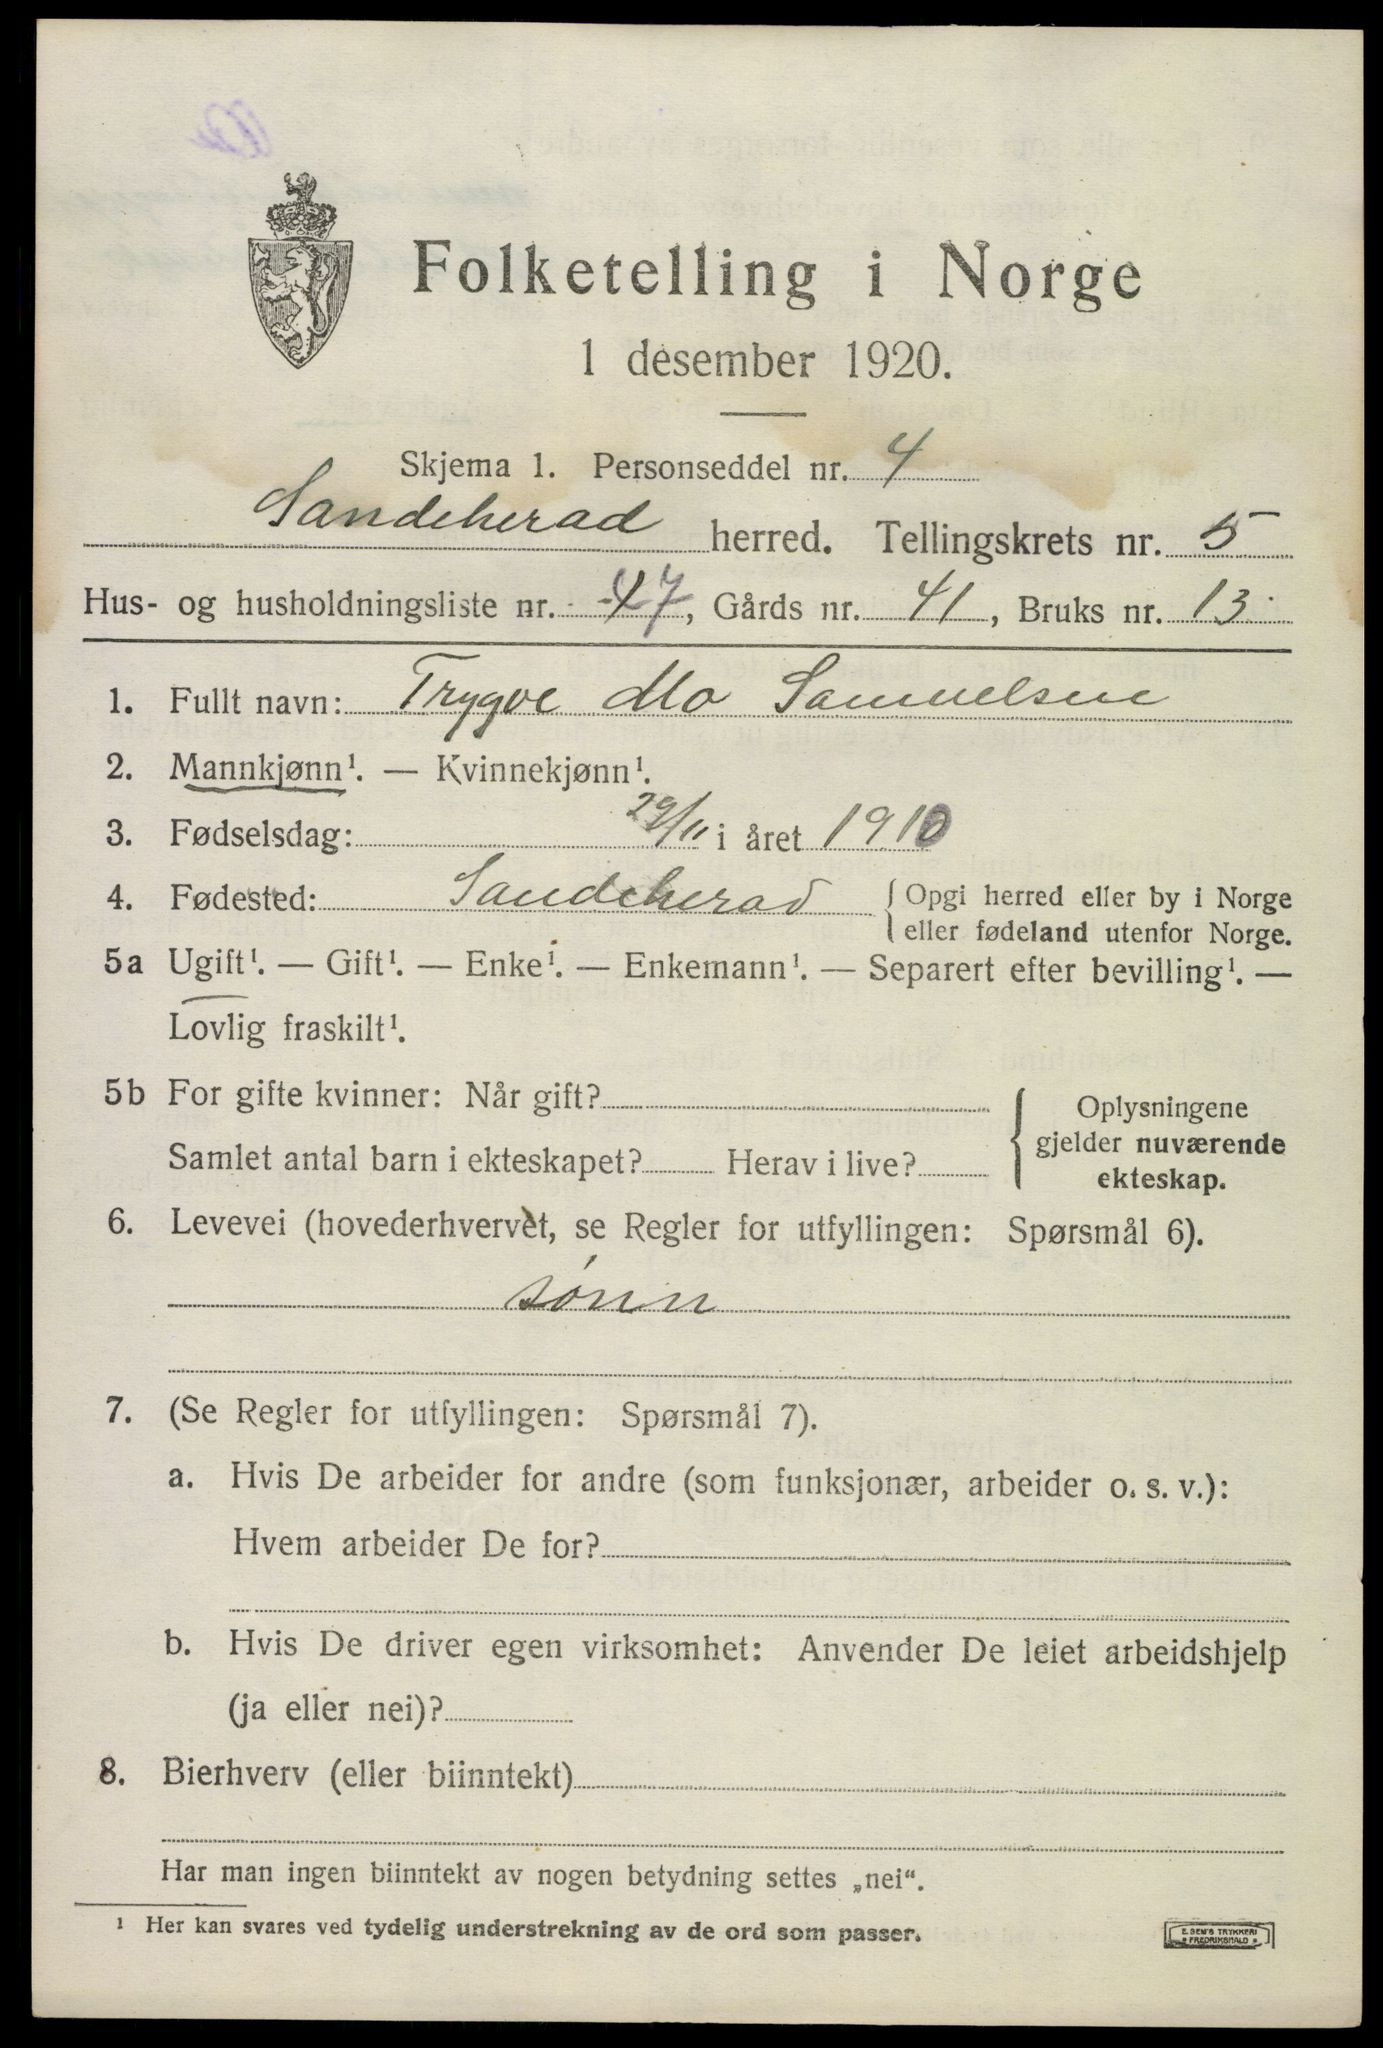 Folketelling i Norge
1 desember 1920.
Skjema 1. Personseddel nr. 4
Sandeherad herred. Tellingskrets nr. 5
Hus- og husholdningsliste nr. 47, Gårds nr. 41, Bruks nr. 13
1. Fullt navn: Trygve Mo Samuelsen
2. Mannkjønn¹. — Kvinnekjønn¹.
3. Fødselsdag: 29/11 i året 1910
4. Fødested: Sandeherad { Opgi herred eller by i Norge
eller fødeland utenfor Norge.
5a Ugift¹. — Gift¹. — Enke¹. — Enkemann¹. — Separert efter bevilling¹. —
Lovlig fraskilt¹.
5b For gifte kvinner: Når gift?
Samlet antal barn i ekteskapet? Herav i live?
{ Oplysningene
gjelder nuværende
ekteskap.
6. Levevei (hovederhvervet, se Regler for utfyllingen: Spørsmål 6).
sønn
7. (Se Regler for utfyllingen: Spørsmål 7).
a. Hvis De arbeider for andre (som funksjonær, arbeider o. s. v.):
Hvem arbeider De for?
b. Hvis De driver egen virksomhet: Anvender De leiet arbeidshjelp
(ja eller nei)?
8. Bierhverv (eller biinntekt)
Har man ingen biinntekt av nogen betydning settes „nei“.
¹ Her kan svares ved tydelig understrekning av de ord som passer.
E. SEM'S TRYKKERI
FREDRIKSHALD